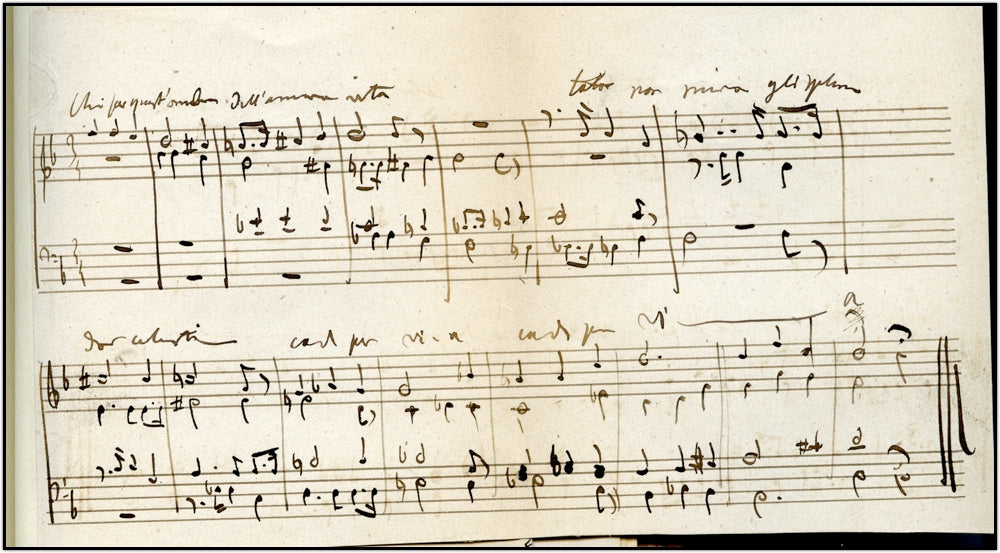 Chi per quest'ombre dell' vita talor non mira gli splen
dor celesti cade per vi-a cade per vi a